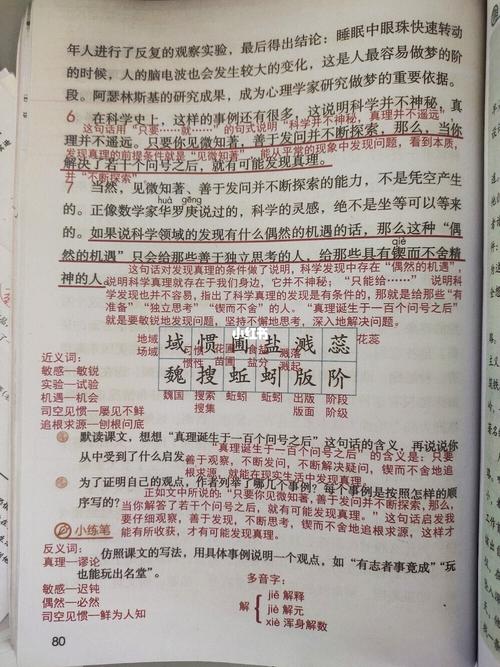 年人进行了反复的观察实验，最后得出结论：睡眠中眼珠快速转动
的时候，人的脑电波也会发生较大的变化，这是人最容易做梦的阶
段。阿瑟林斯基的研究成果，成为心理学家研究做梦的重要依据。
6 在科学史上，这样的事例还有很多，这说明科学并不神秘，真
这句话用“只要……就……”的句式说明“科学并不神秘，真理并不遥远”，
理并不遥远。只要你见微知著，善于发问并不断探索，那么，当你
发现真理的前提条件就是“见微知著”，能从平常的现象中发现问题，看到本质，
解决了若干个问号之后，就有可能发现真理。
并“不断探索”
7 当然，见微知著、善于发问并不断探索的能力，不是凭空产生
huà gēng
的。正像数学家华罗庚说过的，科学的灵感，绝不是坐等可以等来
的。如果说科学领域的发现有什么偶然的机遇的话，那么这种“偶
qiè
然的机遇”只会给那些善于独立思考的人，给那些具有锲而不舍精
神的人。
这句话对发现真理的条件做了说明，科学发现中存在“偶然的机遇”，
说明科学真理就存在于我们身边，它并不神秘；“只能给……”说明科
学发现也并不容易，指出了科学真理的发现是有条件的，那就是给那些“有
准备”“独立思考”“锲而不舍”的人。“真理诞生于一百个问号之后”
就是要敏锐地发现问题，坚持不懈地思考，深入地解决问题。
地域 域 惯 圃 盐 溅 蕊 花蕊
场域 习惯 花圃 食盐 溅落
惯性 苗圃 盐分 溅起
小红书
魏 搜 蚯 蚓 版 阶
魏国 搜索 蚯蚓 蚯蚓 出版 阶段
搜集 版面 阶级
近义词：
敏感—敏锐
实验—试验
机遇—机会
司空见惯—屡见不鲜
追根求源—刨根问底
默读课文，想想“真理诞生于一百个问号之后”这句话的含义，再说说你
从中受到了什么启发。
“真理诞生于一百个问号之后”的含义是：只要
善于观察，不断发问，不断解决疑问，锲而不舍地追
根求源，就能在现实生活中发现真理。
为了证明自己的观点，作者列举了哪几个事例？每个事例是按照怎样的顺
序写的？
正如文中所说的：“只要你见微知著，善于发问并不断探索，那么，
当你解答了若干个问号之后，就有可能发现真理。”这句话启发我
们要仔细观察，善于发现，不断思考，锲而不舍地追根求源，这样才
能有所收获，才有可能发现真理。
小练笔
反义词：
仿照课文的写法，用具体事例说明一个观点，如“有志者事竟成”“玩
也能玩出名堂”。
真理—谬论
敏感—迟钝
偶然—必然
司空见惯—鲜为人知
多音字：
解 jiě 解释
jiè 解元
xiè 浑身解数
80